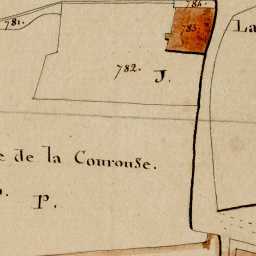 784.
781.
785.
La
782. J.
e de la Courouse.
P.